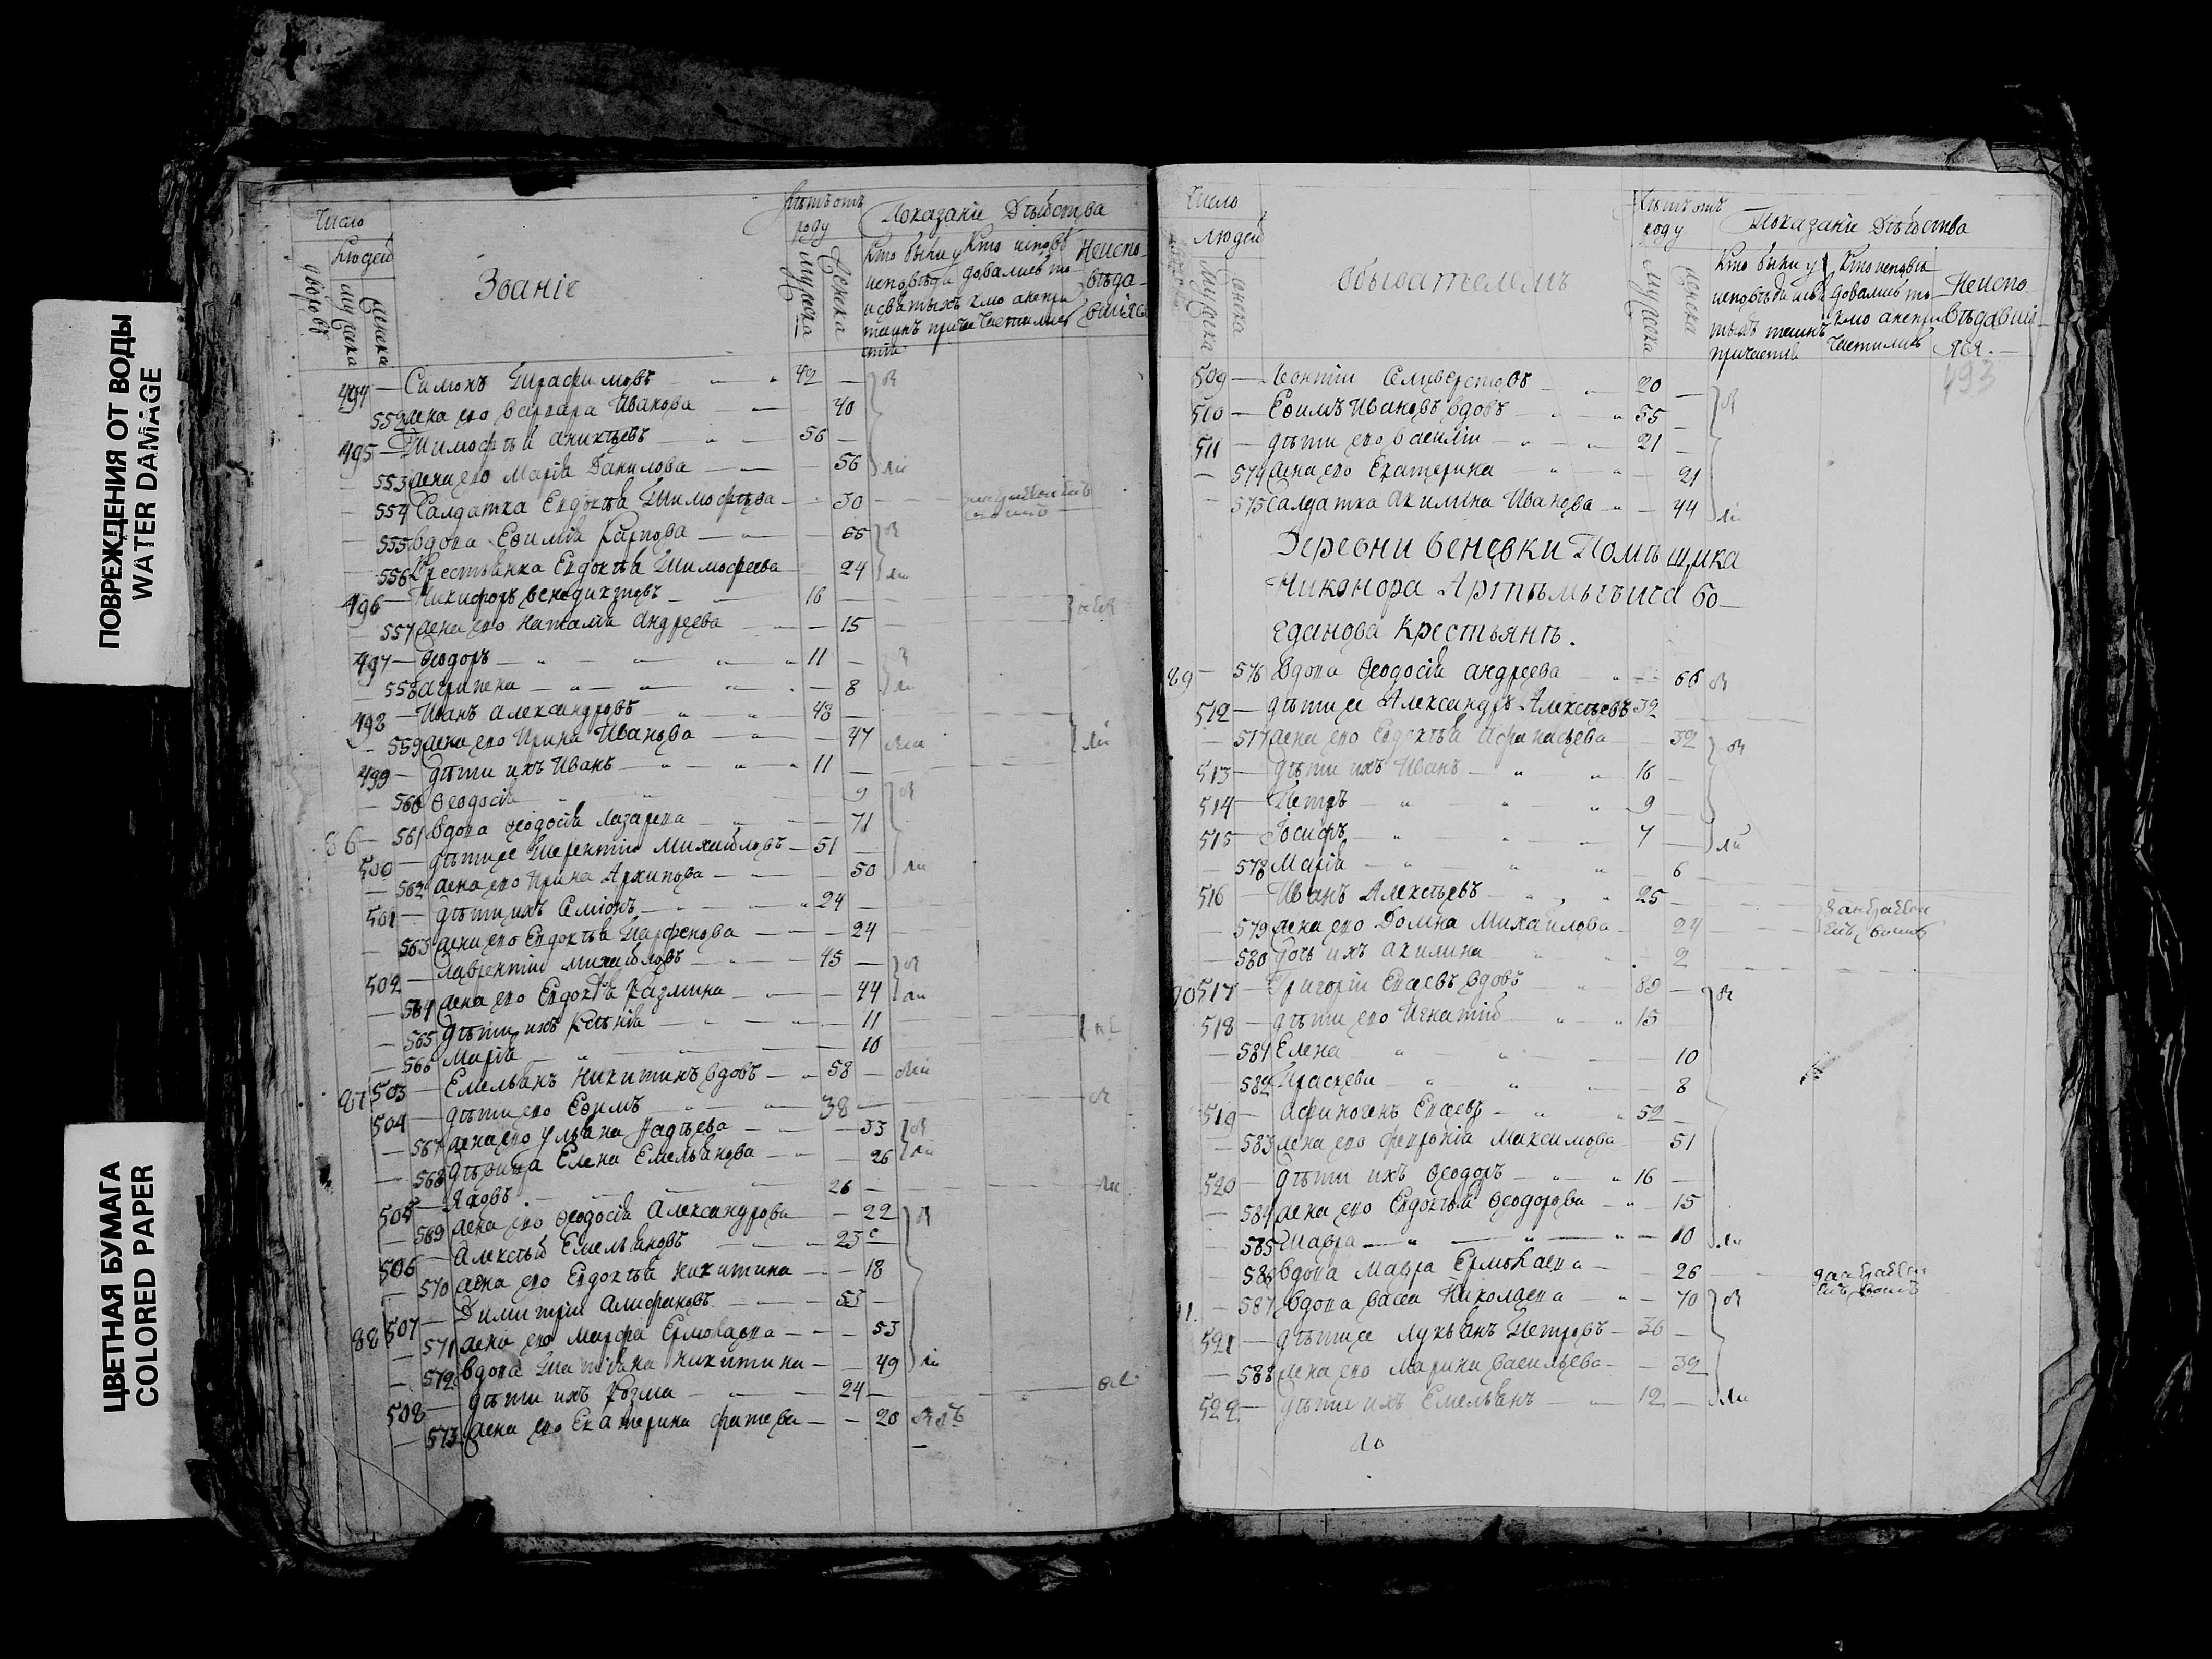 ПОВРЕЖДЕНИЯ ОТ ВОДЫ
WATER DAMAGE
ЦВЕТНАЯ БУМАГА
COLORED PAPER
Число
Людей
дворовъ
мужеска
женска
Званіе
Лѣтъ отъ
роду
мужеска
женска
Показаніе Дѣйства
Кто были у
исповѣди
и святыхъ
таинъ прича
стія
Кто исповѣ
довались то
кмо а непри
частились
Неиспо
вѣда
вшіяся
494 — Симонъ Трофимовъ 42 —
552 жена его Варвара Иванова — 40
495 — Тимофѣй Аникѣевъ 56 —
553 жена его Марія Данилова — 56
554 Салдатка Евдокѣя Тимофѣева — 30
555 вдова Евимія Карпова — 65
556 Крестьянка Евдокѣя Тимофеева 24
496 — Никифоръ Венедиктовъ 16 —
557 жена его Наталія Андреева — 15
497 — Ѳеодоръ 11 —
558 Агрипена — 8
498 — Иванъ Александровъ 48 —
559 жена его Ирина Иванова — 47
499 — дѣти ихъ Иванъ 11 —
560 Ѳеодосія 9
86 — 561 вдова Ѳеодосія Лазарева — 71
500 — дѣти ее Терентій Михайловъ — 51 —
562 жена его Ирина Архипова — 50
501 — дѣти ихъ Семіонъ 24 —
563 жена его Евдокѣя Парфенова — 24
502 — Лаврентій Михайловъ 45 —
564 жена его Евдокѣя Казмина — 44
565 дѣти ихъ Ксѣнія — 11
566 Марія — 10
87 503 — Емельянъ Никитинъ вдовъ — 58 —
504 — дѣти его Евимъ 38 —
567 жена его Ульяна Фадѣева — 33
568 дѣвица Елена Емельянова — 26
505 — Яковъ 26 —
569 жена его Ѳеодосія Александрова — 22
506 — Алексѣй Емельяновъ 23 —
570 жена его Евдокѣя Никитина — 18
88 507 — Димитрій Алифановъ 53 —
571 жена его Марфа Ермолаева — 53
572 вдова Татіяна Никитина — 49
508 — дѣти ихъ Козма 24 —
573 жена его Екатерина Фатева — 20
Число
людей
мужеска
женска
обывателемъ
Лѣтъ отъ
роду
мужеска
женска
Показаніе Дѣйства
Кто были у
исповѣди и свя
тыхъ таинъ
причастія
Кто исповѣ
довались то
кмо а непри
частились
Неиспо
вѣдавші
яся.
493
509 — Леонтій Селиверстовъ 20 —
510 — Евимъ Ивановъ вдовъ 55 —
511 — дѣти его Василій 21 —
574 жена его Екатерина — 21
575 салдатка Акилина Иванова — 44
Деревни Веневки Помѣщика
Никонора Артѣмьевича Бо
гданова Крестьянъ.
89 — 576 вдова Ѳеодосія Андреева 66
512 — дѣти ее Александръ Алексѣевъ 32
577 жена его Евдокѣя Афанасьева — 32
513 — дѣти ихъ Иванъ 16 —
514 — Петръ 9 —
515 — Іосифъ 7 —
578 Марія 6
516 — Иванъ Алексѣевъ 25 —
579 жена его Домна Михайлова 24
580 дочь ихъ Акилина 2
90 517 — Григорій Елсевъ вдовъ 80 —
518 — дѣти его Игнатій 15
581 Елена — 10
582 Праскева — 8
519 — Афиногенъ Елсевъ 52 —
583 жена его Феврônія Максимова 51
520 — дѣти ихъ Ѳеодоръ 16 —
584 жена его Евдокѣя Ѳеодорова — 15
585 Мавра — 10
586 вдова Мавра Ермолаева — 26
587 вдова Васса Николаева — 70
521 — дѣти ее Лукьянъ Петровъ 36 —
588 жена его Марина Васильева — 32
522 — дѣти ихъ Емельянъ 12 —